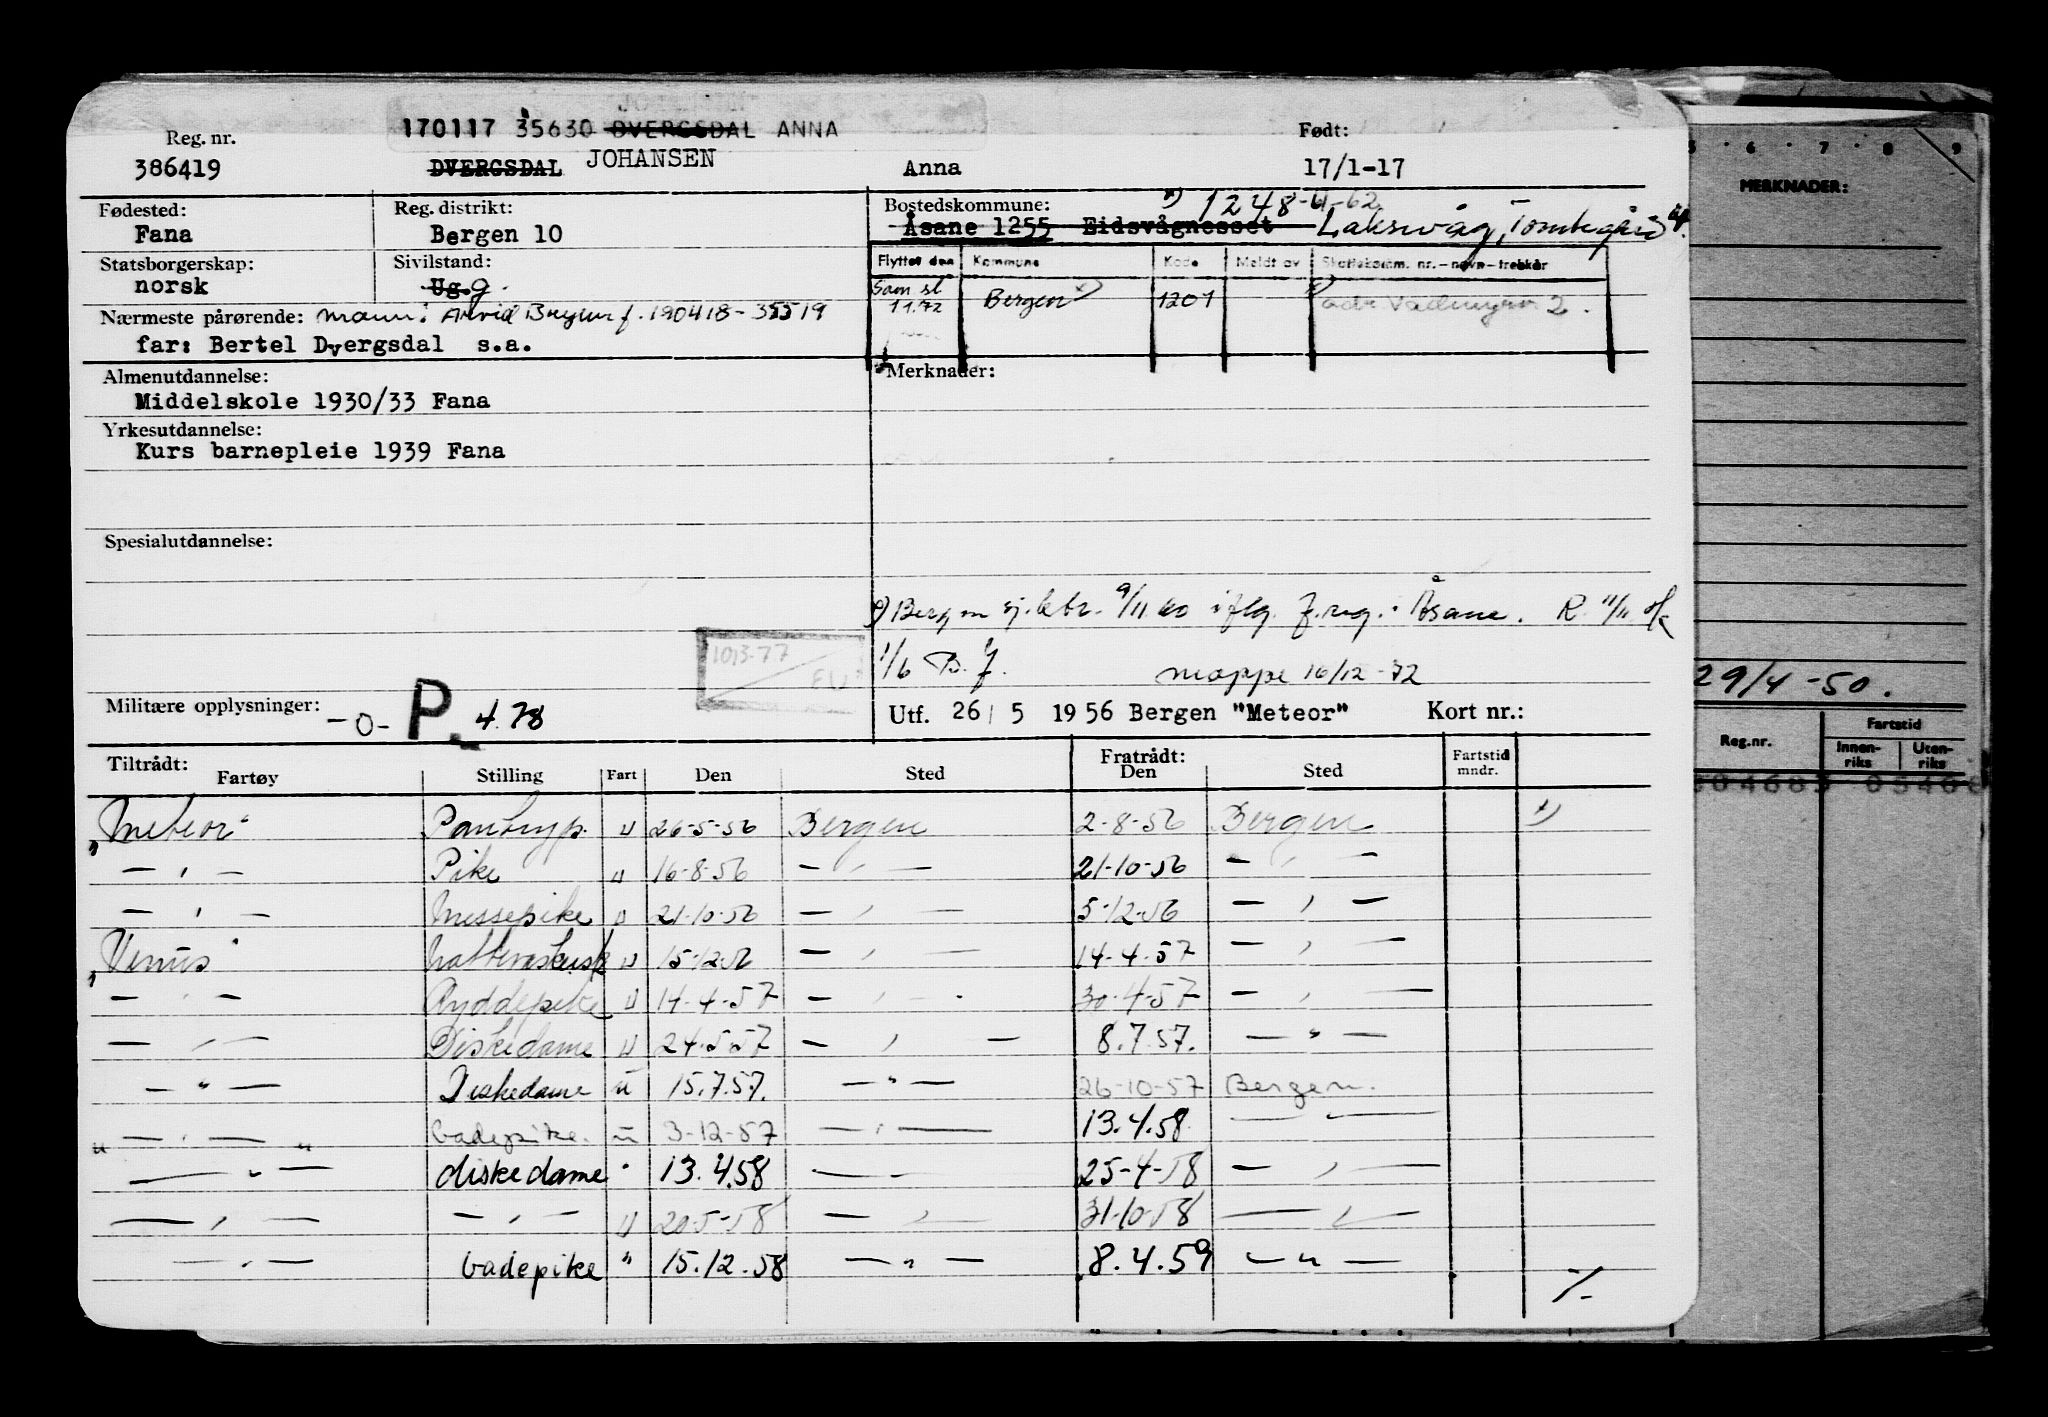 170117 35630 DVERGSDAL ANNA
Reg. nr. Født:
386419 DVERGSDAL JOHANSEN Anna 17/1-17
Fødested: Reg. distrikt: Bostedskommune: 1248-4-62
Fana Bergen 10 Åsane 1255 Eidsvågnesset Laksevåg,
Statsborgerskap: Sivilstand: Flyttet den Kommune Kode Meldt av Skattekomm. nr.-navn-trekkår
norsk Ug. g. Sam sl 11.72 Bergen 1201 adr. 2.
Nærmeste pårørende: mann: Arvid f. 190418-35519
far: Bertel Dvergsdal s.a.
Almenutdannelse: Merknader:
Middelskole 1930/33 Fana
Yrkesutdannelse:
Kurs barnepleie 1939 Fana
Spesialutdannelse:
Bergen 9/11 60 iflg. f.reg. i Åsane. R. 11/11
1013-77
1/6 mappe 16/12-72
Militære opplysninger: -0- P. 4.78 Utf. 26/5 1956 Bergen "Meteor" Kort nr.:
Tiltrådt: Fratrådt:
Fartøy Stilling Fart Den Sted Den Sted Fartstid mndr.
"Meteor" Pantryp. u 26-5-56 Bergen 2-8-56 Bergen 1)
— " — Pike u 16-8-56 — " — 21-10-56 — " —
— " — Messepike u 21-10-56 — " — 5-12-56 — " —
"Venus" u 15-12-56 — " — 14-4-57 — " —
— " — Ryddepike u 14-4-57 — " — 30-4-57 — " —
— " — Diskedame u 24.5.57 — " — 8.7.57. — " —
— " — Diskedame u 15.7.57. — " — 26-10-57 Bergen.
— " — badepike. u 3-12-57 — " — 13.4.58 — " —
— " — diskedame " 13.4.58 — " — 25-4-58 — " —
— " — — " — u 20-5-58 — " — 31-10-58 — " —
— " — badepike " 15.12.58 — " — 8.4.59 — " —
·/.
5 · 6 · 7 · 8 · 9
MERKNADER:
29/4-50.
Reg.nr. Fartstid
Innen-riks Uten-riks